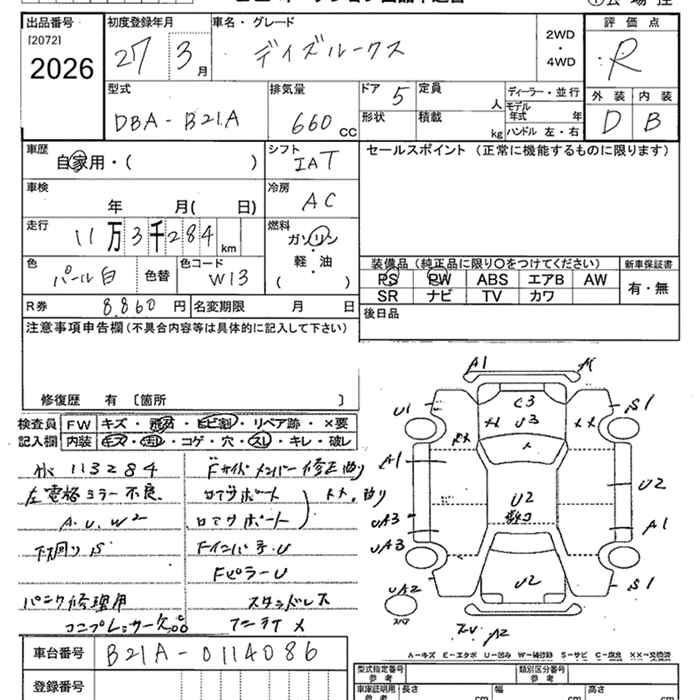 出品番号
[2072]
2026
初度登録年月
27 3月
車名・グレード
デイズルークス
2WD
・
4WD
評価点
R
型式
DBA-B21A
排気量
660 CC
ドア 5
形状
定員 人
積載 kg
ディーラー・並行
モデル年式 年
ハンドル 左・右
外装 内装
D B
車歴
自家用・( )
シフト
IAT
セールスポイント (正常に機能するものに限ります)
車検
年 月( 日)
冷房
AC
走行
11万3千284 km
燃料
ガソリン
軽・油
( )
色
パール白
色替
色コード
W13
装備品 (純正品に限り○をつけてください)
PS PW ABS エアB AW
SR ナビ TV カワ
新車保証書
有・無
R券 8.860 円
名変期限 月 日
後日品
注意事項申告欄 (不具合内容等は具体的に記入して下さい)
修復歴 有 [箇所 ]
検査員 FW キズ・飛石・ヒビ割・リペア跡・×要
記入欄 内装 キズ・汚レ・コゲ・穴・スレ・キレ・破レ
113284
左電格ミラー不良
A.U.W2
下廻りS
パンク修理用
コンプレッサー欠品
Fサイドメンバー修正 曲り
ロアサポート
ロアサポート
Fインパネ U
FピラーU
スタッドレス
A1
U1
S1
C3
U3
××
××
A1
U2
U2
UA3
A1
UA3
UA2
U2
S1
スペア
A2
A-キズ E-エクボ U-凹み W-補修跡 S-サビ C-腐食 ××-交換済
車台番号
B21A-0114086
登録番号
型式指定番号
参考
類別区分番号
参考
車庫証明用
参考
長さ cm
幅 cm
高さ cm